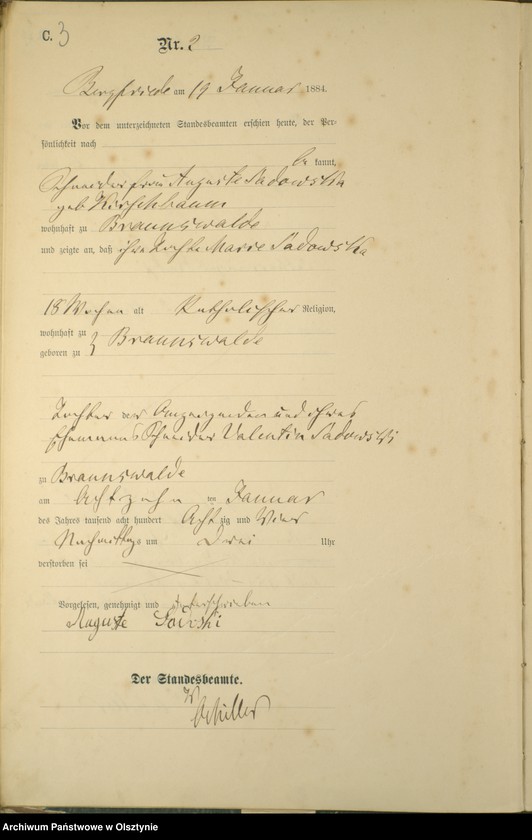 C. 3
Nr. 2
Bergfriede am 19 Januar 1884.
Vor dem unterzeichneten Standesbeamten erschien heute, der Per-
sönlichkeit nach
be kannt,
Schneiderfrau Auguste Sadowska
geb Kirschbaum
wohnhaft zu Braunswalde
und zeigte an, daß ihre Tochter Marie Sadowska
18 Wochen alt Katholischer Religion,
wohnhaft zu
geboren zu } Braunswalde
Tochter der Anzeigenden und ihres
Ehemannes Schneider Valentin Sadowski
zu Braunswalde
am Achtzehn ten Januar
des Jahres tausend acht hundert Acht zig und Vier
Nachmittags um Drei Uhr
verstorben sei
Vorgelesen, genehmigt und unterschrieben
Auguste
Der Standesbeamte.
Schiller
Archiwum Państwowe w Olsztynie